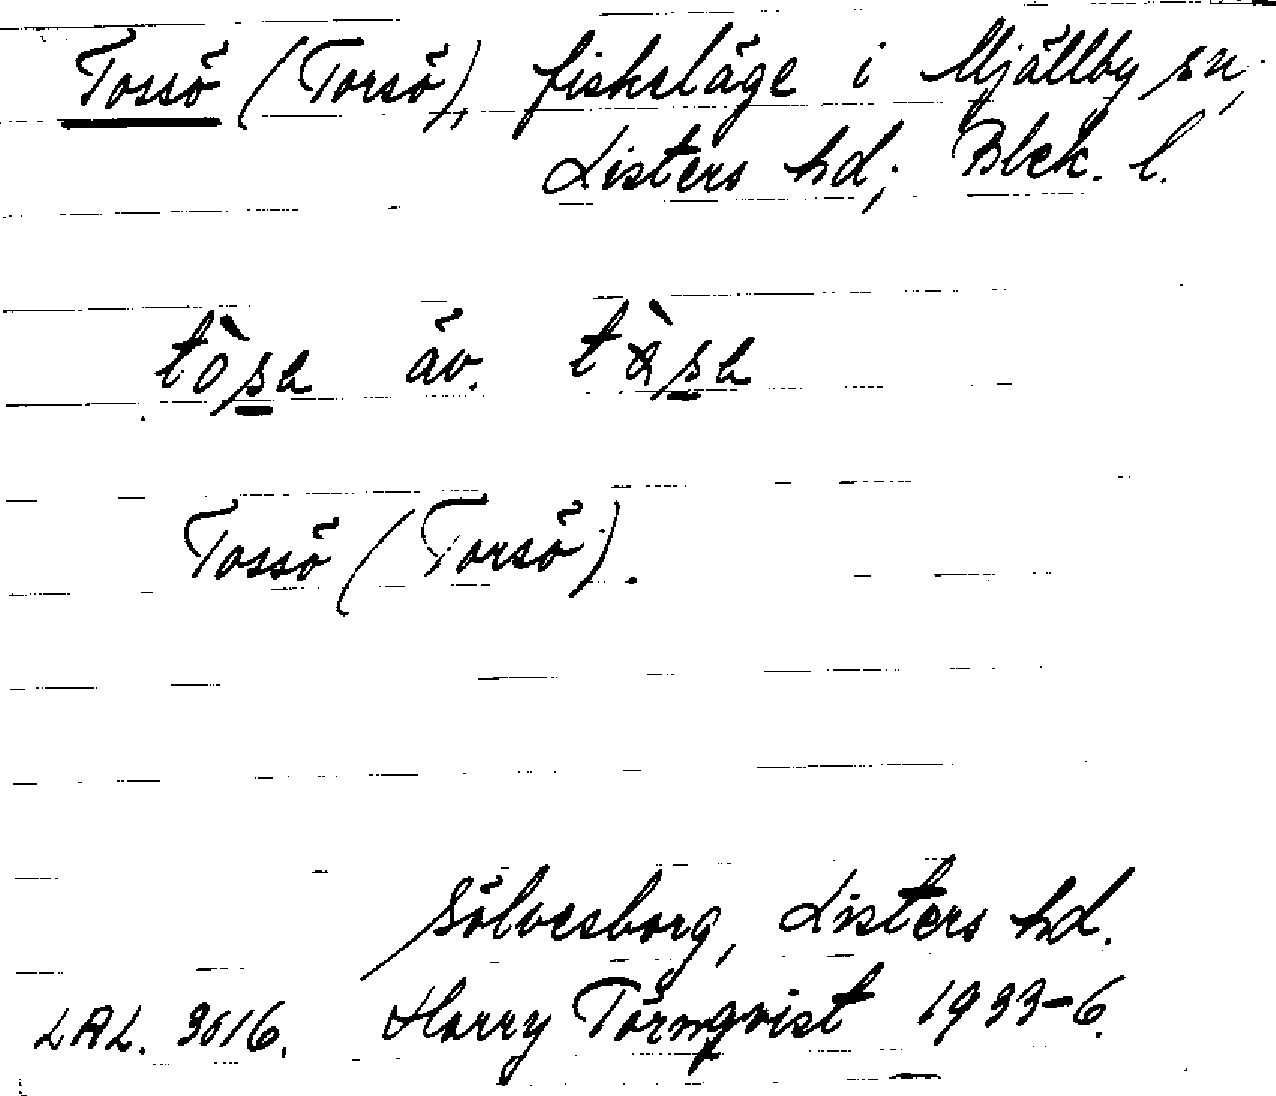 Tossö (Torsö), fiskeläge i Mjällby sn,
Listers hd; Blek. l.
tòsa äv. tàsa
Tossö (Torsö).
Sölvesborg, Listers hd.
LAL. 3016. Harry Törnqvist 1933-6.